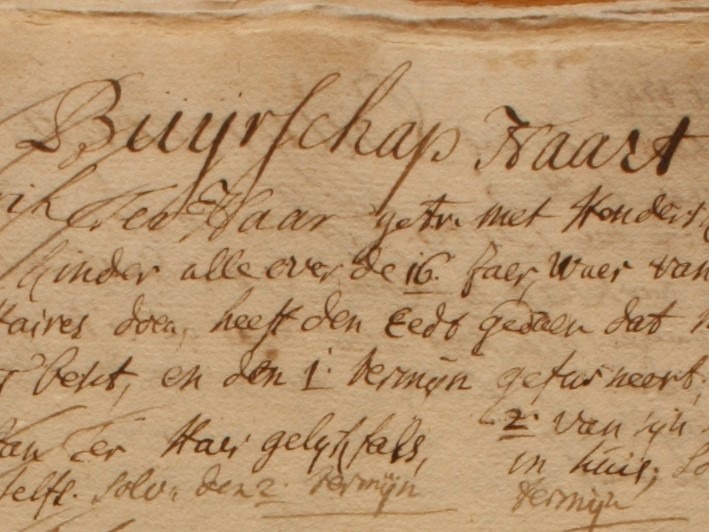 Buijrschap Haart
Ter Haar getr. met Henders
kinder alle over de 16. Jaer, waer van
doen, heeft den Eedt gedaen dat
besit, en den 1. termijn gefurneert,
Jan Ter Haer gelijkfals, 2. van sijn
selfs. solv. den 2. termijn in huis,
termijn